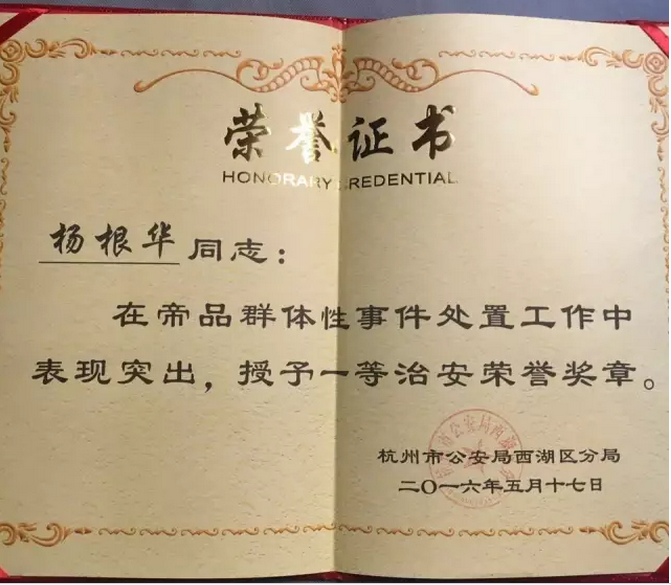 荣誉证书
HONORARY CREDENTIAL
杨根华同志：
在帝品群体性事件处置工作中
表现突出，授予一等治安荣誉奖章。
杭州市公安局西湖区分局
二〇一六年五月十七日